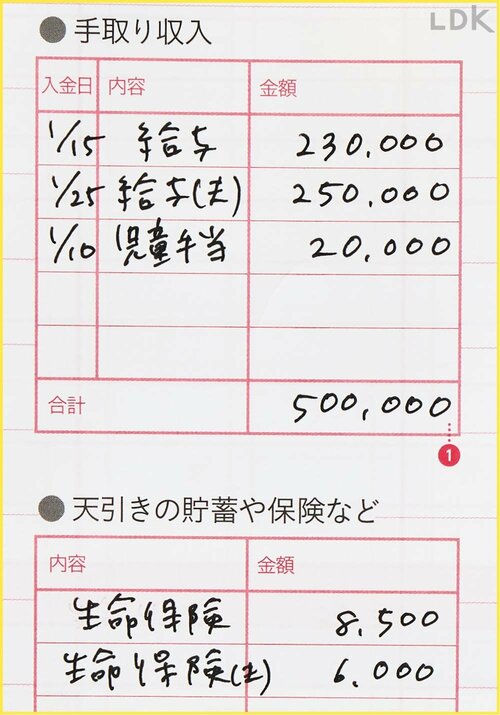 LDK
● 手取り収入
入金日 内容 金額
1/15 給与 230,000
1/25 給与(夫) 250,000
1/10 児童手当 20,000
合計 500,000
1
● 天引きの貯蓄や保険など
内容 金額
生命保険 8,500
生命保険(夫) 6,000